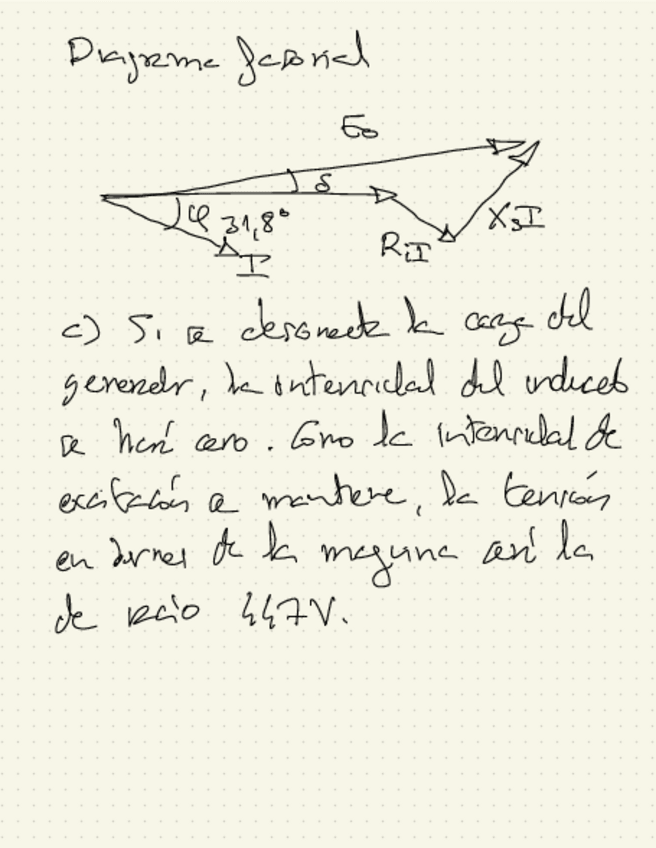 Diagrama fasorial
E₀
δ
φ 31,8°
I
RᵢI
XₛI
c) Si se desconecta la carga del
generador, la intensidad del inducido
se hará cero. Como la intensidad de
excitación se mantiene, la tensión
en bornes de la maquina será la
de vacío 447V.